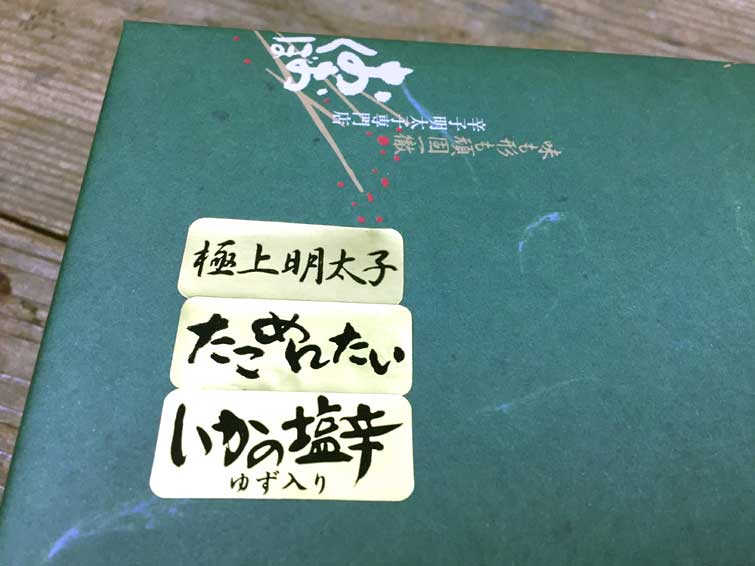 辛子明太子専門店
味も形も頑固一徹
極上明太子
たこめんたい
いかの塩辛
ゆず入り